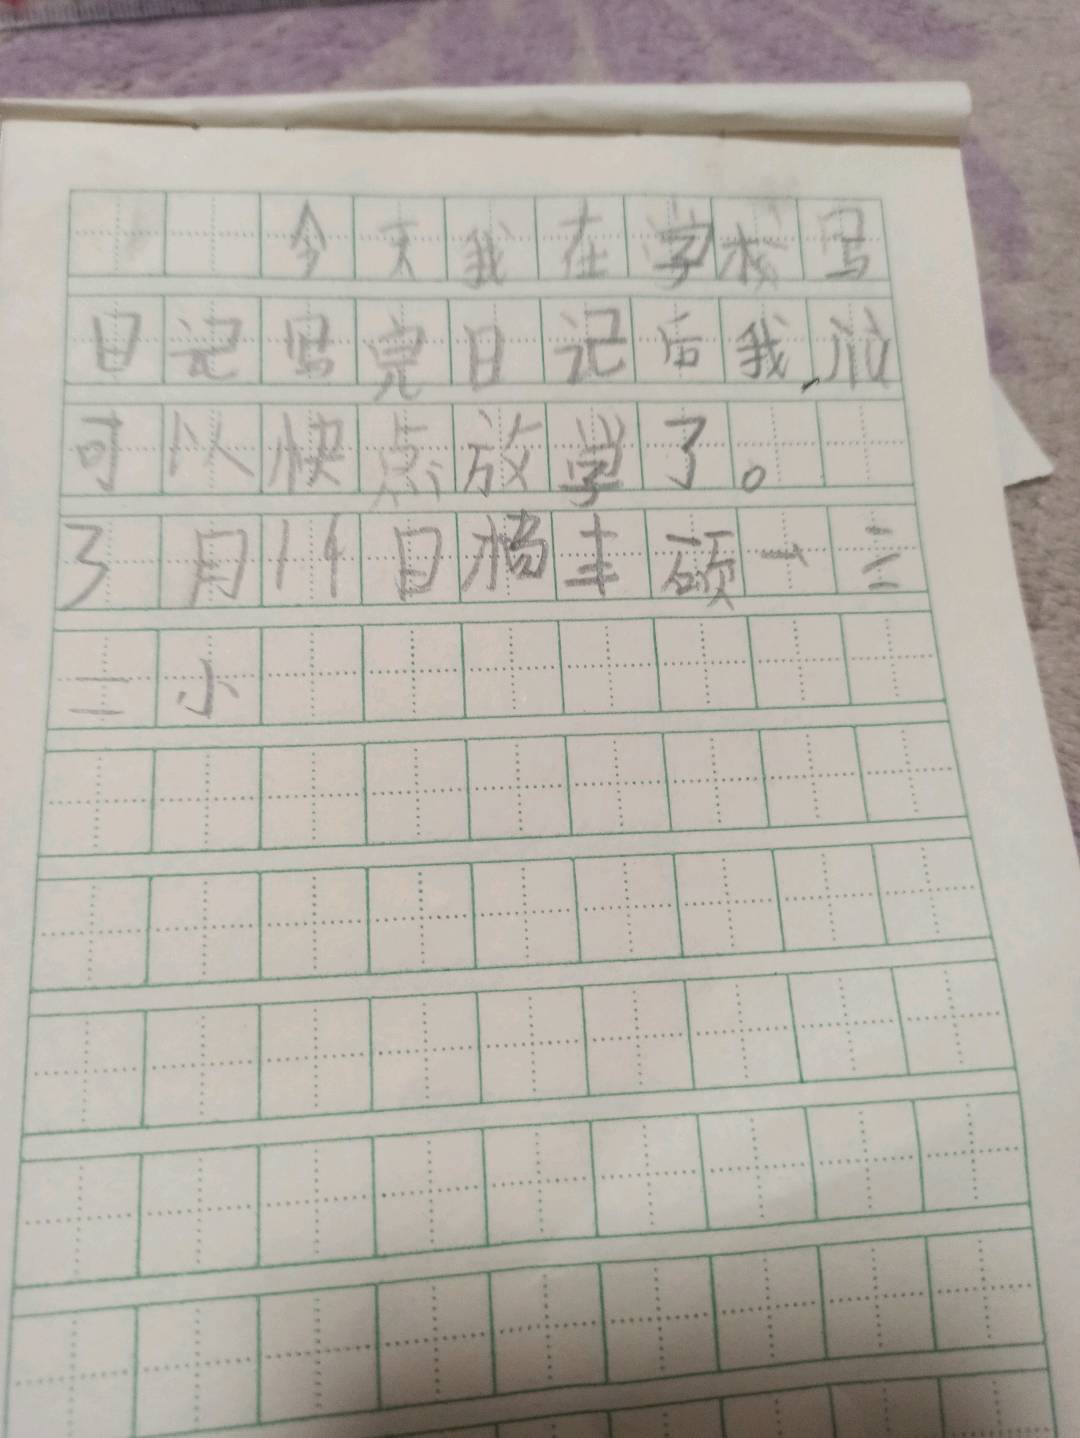 今天我在学校写
日记写完日记后我,
可以快点放学了。
3月19日杨丰硕一三
二小